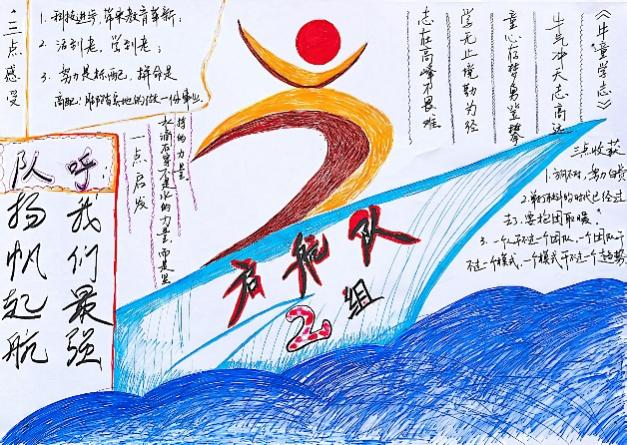 三点感受
1. 科技进步，带来教育革新；
2. 活到老，学到老；
3. 努力是标配，拼命是
高配；脚踏实地的做一份事业。
《牛童学志》
牛气冲天志高远
童心启梦勇登攀
学无止境勤为径
志在高峰不畏难
一点启发
水滴石穿不是水的力量，而是坚
持的力量
呼：我们最强
队扬帆起航
启航队
2组
三点收获
1. 方向不对，努力白费
2. 单打独斗的时代已经过
去了，要抱团取暖。
3. 一个人干不过一个团队，一个团队干
不过一个模式，一个模式干不过一个趋势。